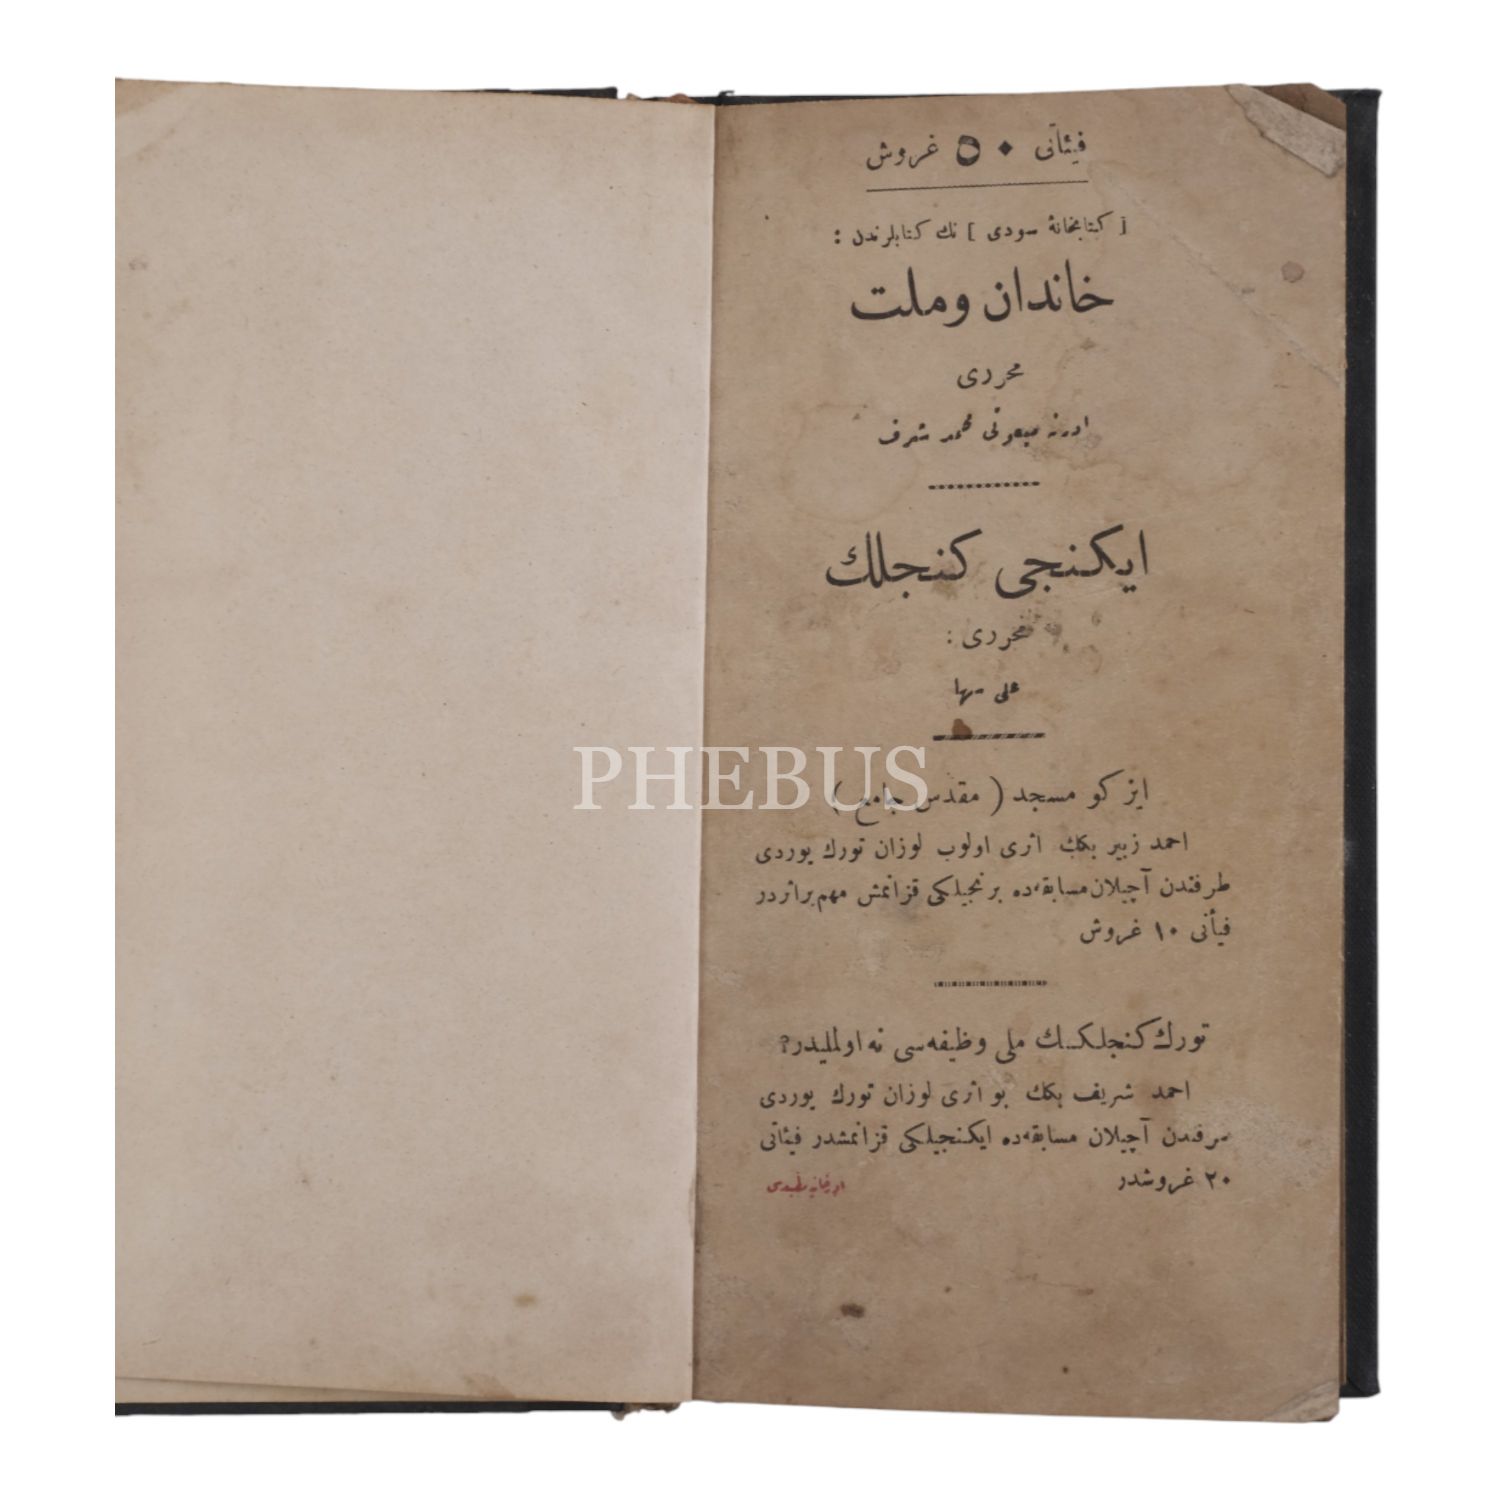 فيئاتی ٥٠ غروش
[ كتابخانۀ سودی ] نك كتابلرندن :
خاندان وملت
محرری
ادرنه مبعوثی محمد شرف
ایكنجی كنجلك
محرری :
علی سها
ایز كو مسجد ( مقدس جامع )
PHEBUS
احمد زبیر بكك اثری اولوب لوزان تورك یوردی
طرفندن آچیلان مسابقه‌ده برنجیلكی قزانمش مهم براثردر
فیأتی ١٠ غروش
تورك كنجلكـنك ملی وظیفه‌سی نه اولملیدر؟
احمد شریف بكك بو اثری لوزان تورك یوردی
طرفندن آچیلان مسابقه‌ده ایكنجیلكی قزانمشدر فیئاتی
٢٠ غروشدر